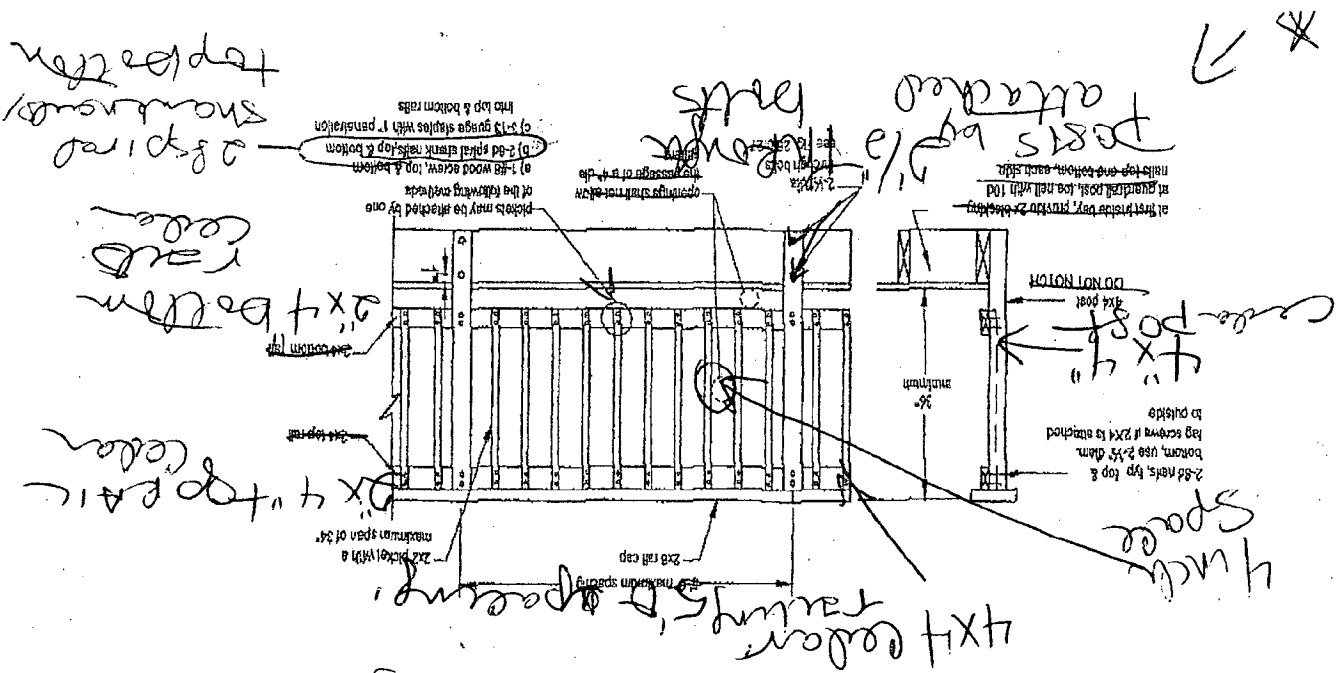 4x4 Cedar
railings 5' spacing.
maximum spacing
4 inch
space
2x6 rail cap
2x2 picket with a
maximum span of 34"
2"x4" top rail
Cedar
2x4 top rail
2-8d nails, typ top &
bottom, use 2-½" diam.
lag screws if 2X4 is attached
to outside
36"
minimum
4"x4"
Cedar post
4x4 post
DO NOT NOTCH
2x4 bottom rail
2"x4 bottom
rails
Cedar
at first inside bay, provide 2x blocking
at guardrail post, toe nail with 10d
nails top and bottom, each side
posts by 2 1/2"
attached
bolts
2-½" dia
through bolts
openings shall not allow
the passage of a 4" dia
pickets may be attached by one
of the following methods
a) 1-#8 wood screw, top & bottom
b) 2-8d spiral shank nails, top & bottom
c) 3-13 guage staples with 1" penetration
into top & bottom rails
2 spiral
shank nails,
top bottom